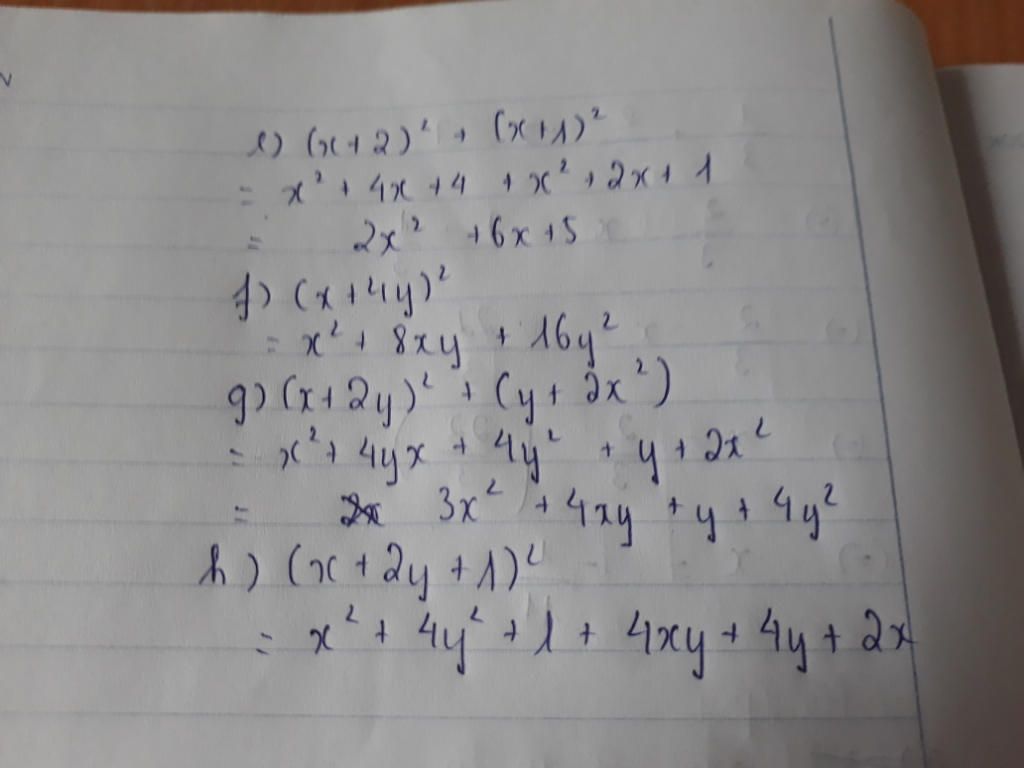 e) (x+2)² + (x+1)²
= x² + 4x + 4 + x² + 2x + 1
= 2x² + 6x + 5
f) (x+4y)²
= x² + 8xy + 16y²
g) (x+2y)² + (y+2x²)
= x² + 4yx + 4y² + y + 2x²
= 3x² + 4xy + y + 4y²
h) (x+2y+1)²
= x² + 4y² + 1 + 4xy + 4y + 2x